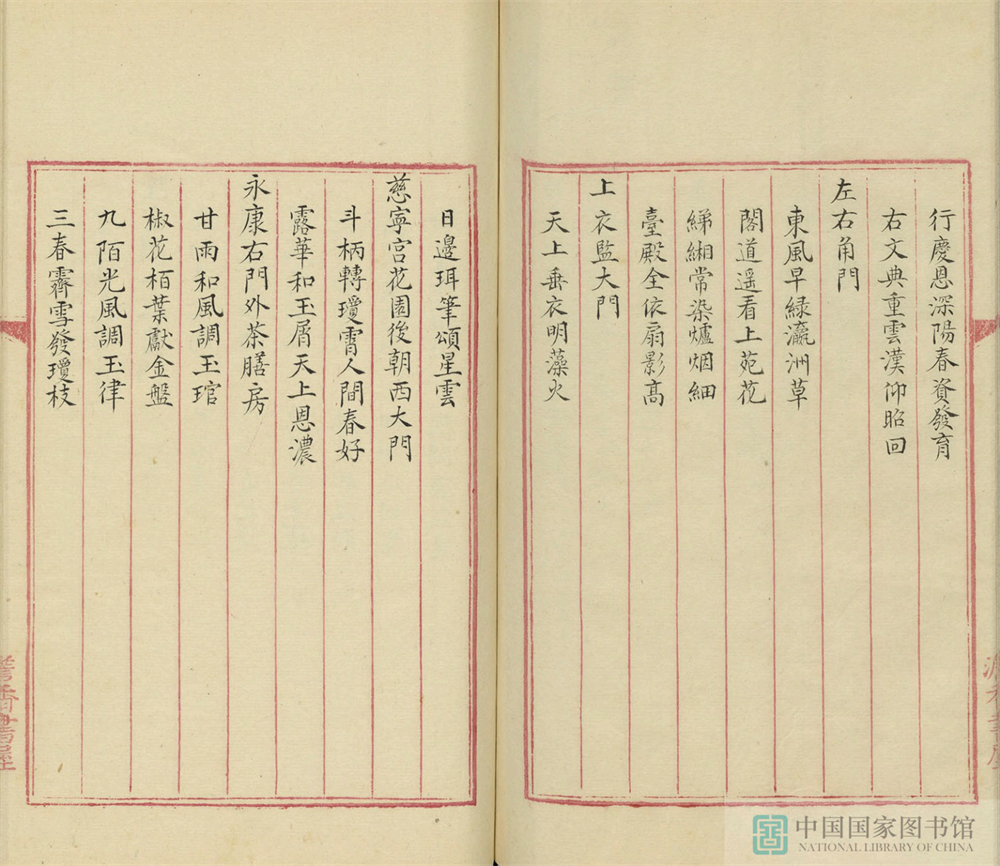 行慶恩深陽春資發育
右文典重雲漢仰昭回
左右角門
東風早綠瀛洲草
閣道遥看上苑花
綈緗常染爐烟細
臺殿全依扇影高
上衣監大門
天上垂衣明藻火
日邊珥筆頌星雲
慈寧宮花園後朝西大門
斗柄轉瓊霄人間春好
露華和玉屑天上恩濃
永康右門外茶膳房
甘雨和風調玉琯
椒花栢葉獻金盤
九陌光風調玉律
三春霽雪發瓊枝
中国国家图书馆
NATIONAL LIBRARY OF CHINA